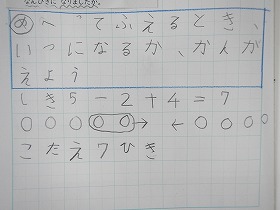 なんびきに なりましたか。
め へってふえるとき、
いつになるか、かんが
えよう
しき5-2+4=7
○○○○○→ ←○○○○
こたえ7ひき